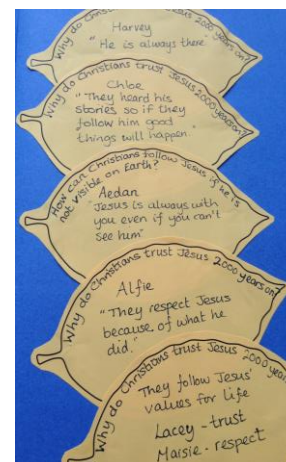 Why do Christians trust Jesus 2000 years on?
Harvey
"He is always there"
Why do Christians trust Jesus 2000 years on?
Chloe
"They heard his
stories so if they
follow him good
things will happen."
How can Christians follow Jesus if he is
not visible on Earth?
Aedan
"Jesus is always with
you even if you can't
see him"
Why do Christians trust Jesus 2000 years on?
Alfie
"They respect Jesus
because of what he
did."
Why do Christians trust Jesus 2000 year
They follow Jesus'
values for life
Lacey - trust
Maisie - respect